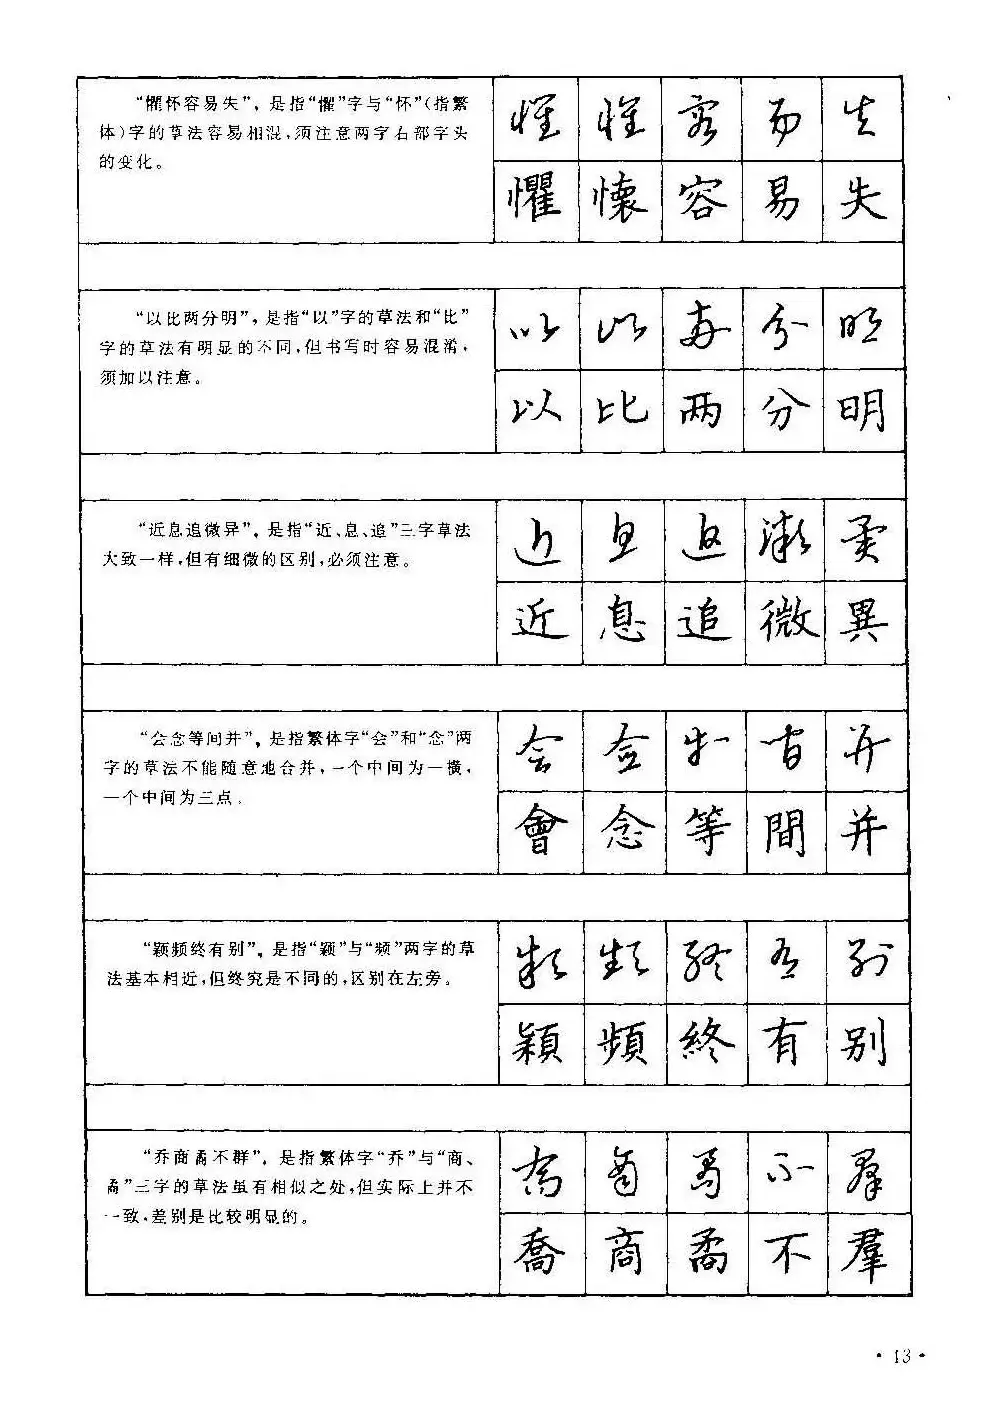 “懼怀容易失”，是指“懼”字与“怀”(指繁
体)字的草法容易相混，须注意两字右部字头
的变化。
懼 懷 容 易 失
懼 懷 容 易 失
“以比两分明”，是指“以”字的草法和“比”
字的草法有明显的不同，但书写时容易混淆，
须加以注意。
以 比 两 分 明
以 比 两 分 明
“近息追微异”，是指“近、息、追”三字草法
大致一样，但有细微的区别，必须注意。
近 息 追 微 異
近 息 追 微 異
“会念等间并”，是指繁体字“会”和“念”两
字的草法不能随意地合并，一个中间为一横，
一个中间为三点。
會 念 等 間 并
會 念 等 間 并
“颖频终有别”，是指“颖”与“频”两字的草
法基本相近，但终究是不同的，区别在左旁。
穎 頻 終 有 别
穎 頻 終 有 别
“乔商矞不群”，是指繁体字“乔”与“商、
矞”三字的草法虽有相似之处，但实际上并不
一致，差别是比较明显的。
喬 商 矞 不 羣
喬 商 矞 不 羣
·13·